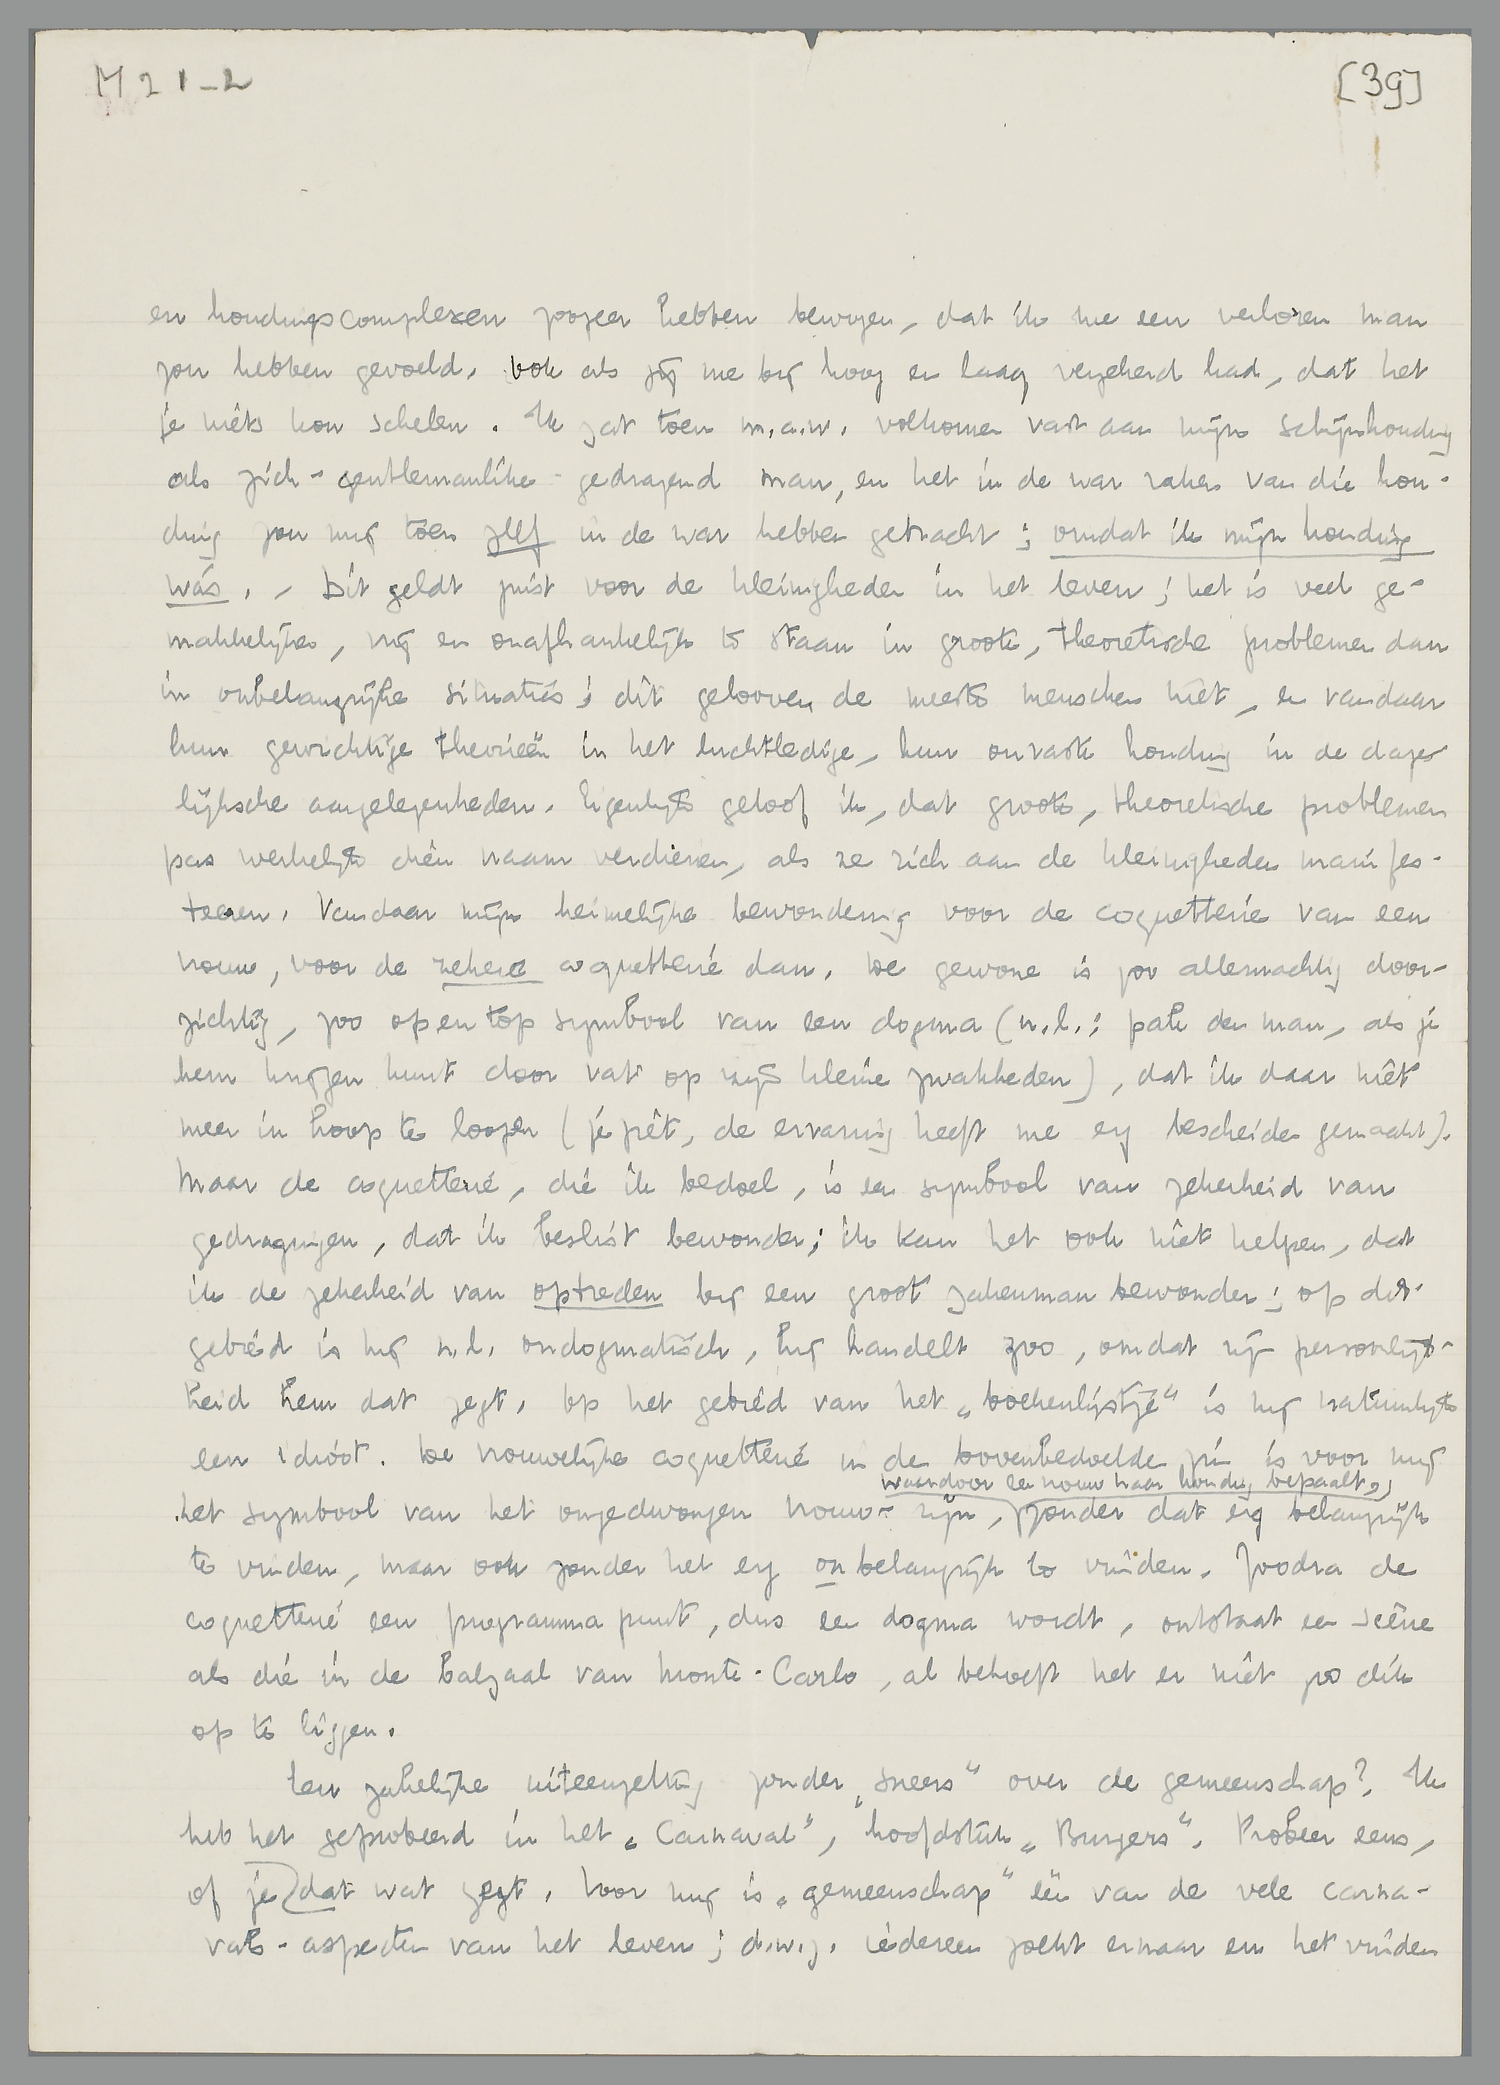 M 21-2
[39]
en houdingscomplexen zoozeer hebben bewogen, dat ik me een verloren man
zou hebben gevoeld, ook als jij me bij hoog en laag verzekerd had, dat het
je niets kon schelen. Ik zat toen m.a.w. volkomen vast aan mijn schijnhouding
als zich-gentlemanlike-gedragend man, en het in de war raken van die hou-
ding zou mij toen zelf in de war hebben gebracht; omdat ik mijn houding
wás. – Dit geldt juist voor de kleinigheden in het leven; het is veel ge-
makkelijker, vrij en onafhankelijk te staan in groote, theoretische problemen dan
in onbelangrijke situaties; dit gelooven de meeste menschen niet, en vandaar
hun gewichtige theorieën in het luchtledige, hun onvaste houding in de dage-
lijksche aangelegenheden. Eigenlijk geloof ik, dat groote, theoretische problemen
pas werkelijk dien naam verdienen, als ze zich aan de kleinigheden manifes-
teeren. Vandaar mijn heimelijke bewondering voor de coquetterie van een
vrouw, voor de zekere coquetterie dan. De gewone is zoo allemachtig door-
zichtig, zoo op en top symbool van een dogma (n.l.: pak den man, als je
hem krijgen kunt door vat op zijn kleine zwakheden), dat ik daar niet
meer in hoop te loopen (je ziet, de ervaring heeft me erg bescheiden gemaakt).
Maar de coquetterie, die ik bedoel, is een symbool van zekerheid van
gedragingen, dat ik beslist bewonder; ik kan het ook niet helpen, dat
ik de zekerheid van optreden bij een groot zakenman bewonder; op dit
gebied is hij n.l. ondogmatisch, hij handelt zoo, omdat zijn persoonlijk-
heid hem dat zegt. Op het gebied van het „boekenlijstje" is hij natuurlijk
een idioot. De vrouwelijke coquetterie in de bovenbedoelde zin is voor mij
waardoor een vrouw haar houding bepaalt,
het symbool van het ongedwongen vrouw-zijn, zonder dat erg belangrijk
te vinden, maar ook zonder het erg onbelangrijk te vinden. Zoodra de
coquetterie een programmapunt, dus een dogma wordt, ontstaat een scène
als die in de balzaal van Monte-Carlo, al behoeft het er niet zoo dik
op te liggen.
Een zakelijke uiteenzetting zonder „sneers" over de gemeenschap? Ik
heb het geprobeerd in het „Carnaval", hoofdstuk „Burgers". Probeer eens,
of je dat wat zegt. Voor mij is „gemeenschap" één van de vele carna-
vals-aspecten van het leven; d.w.z. iedereen zoekt ernaar en het vinden